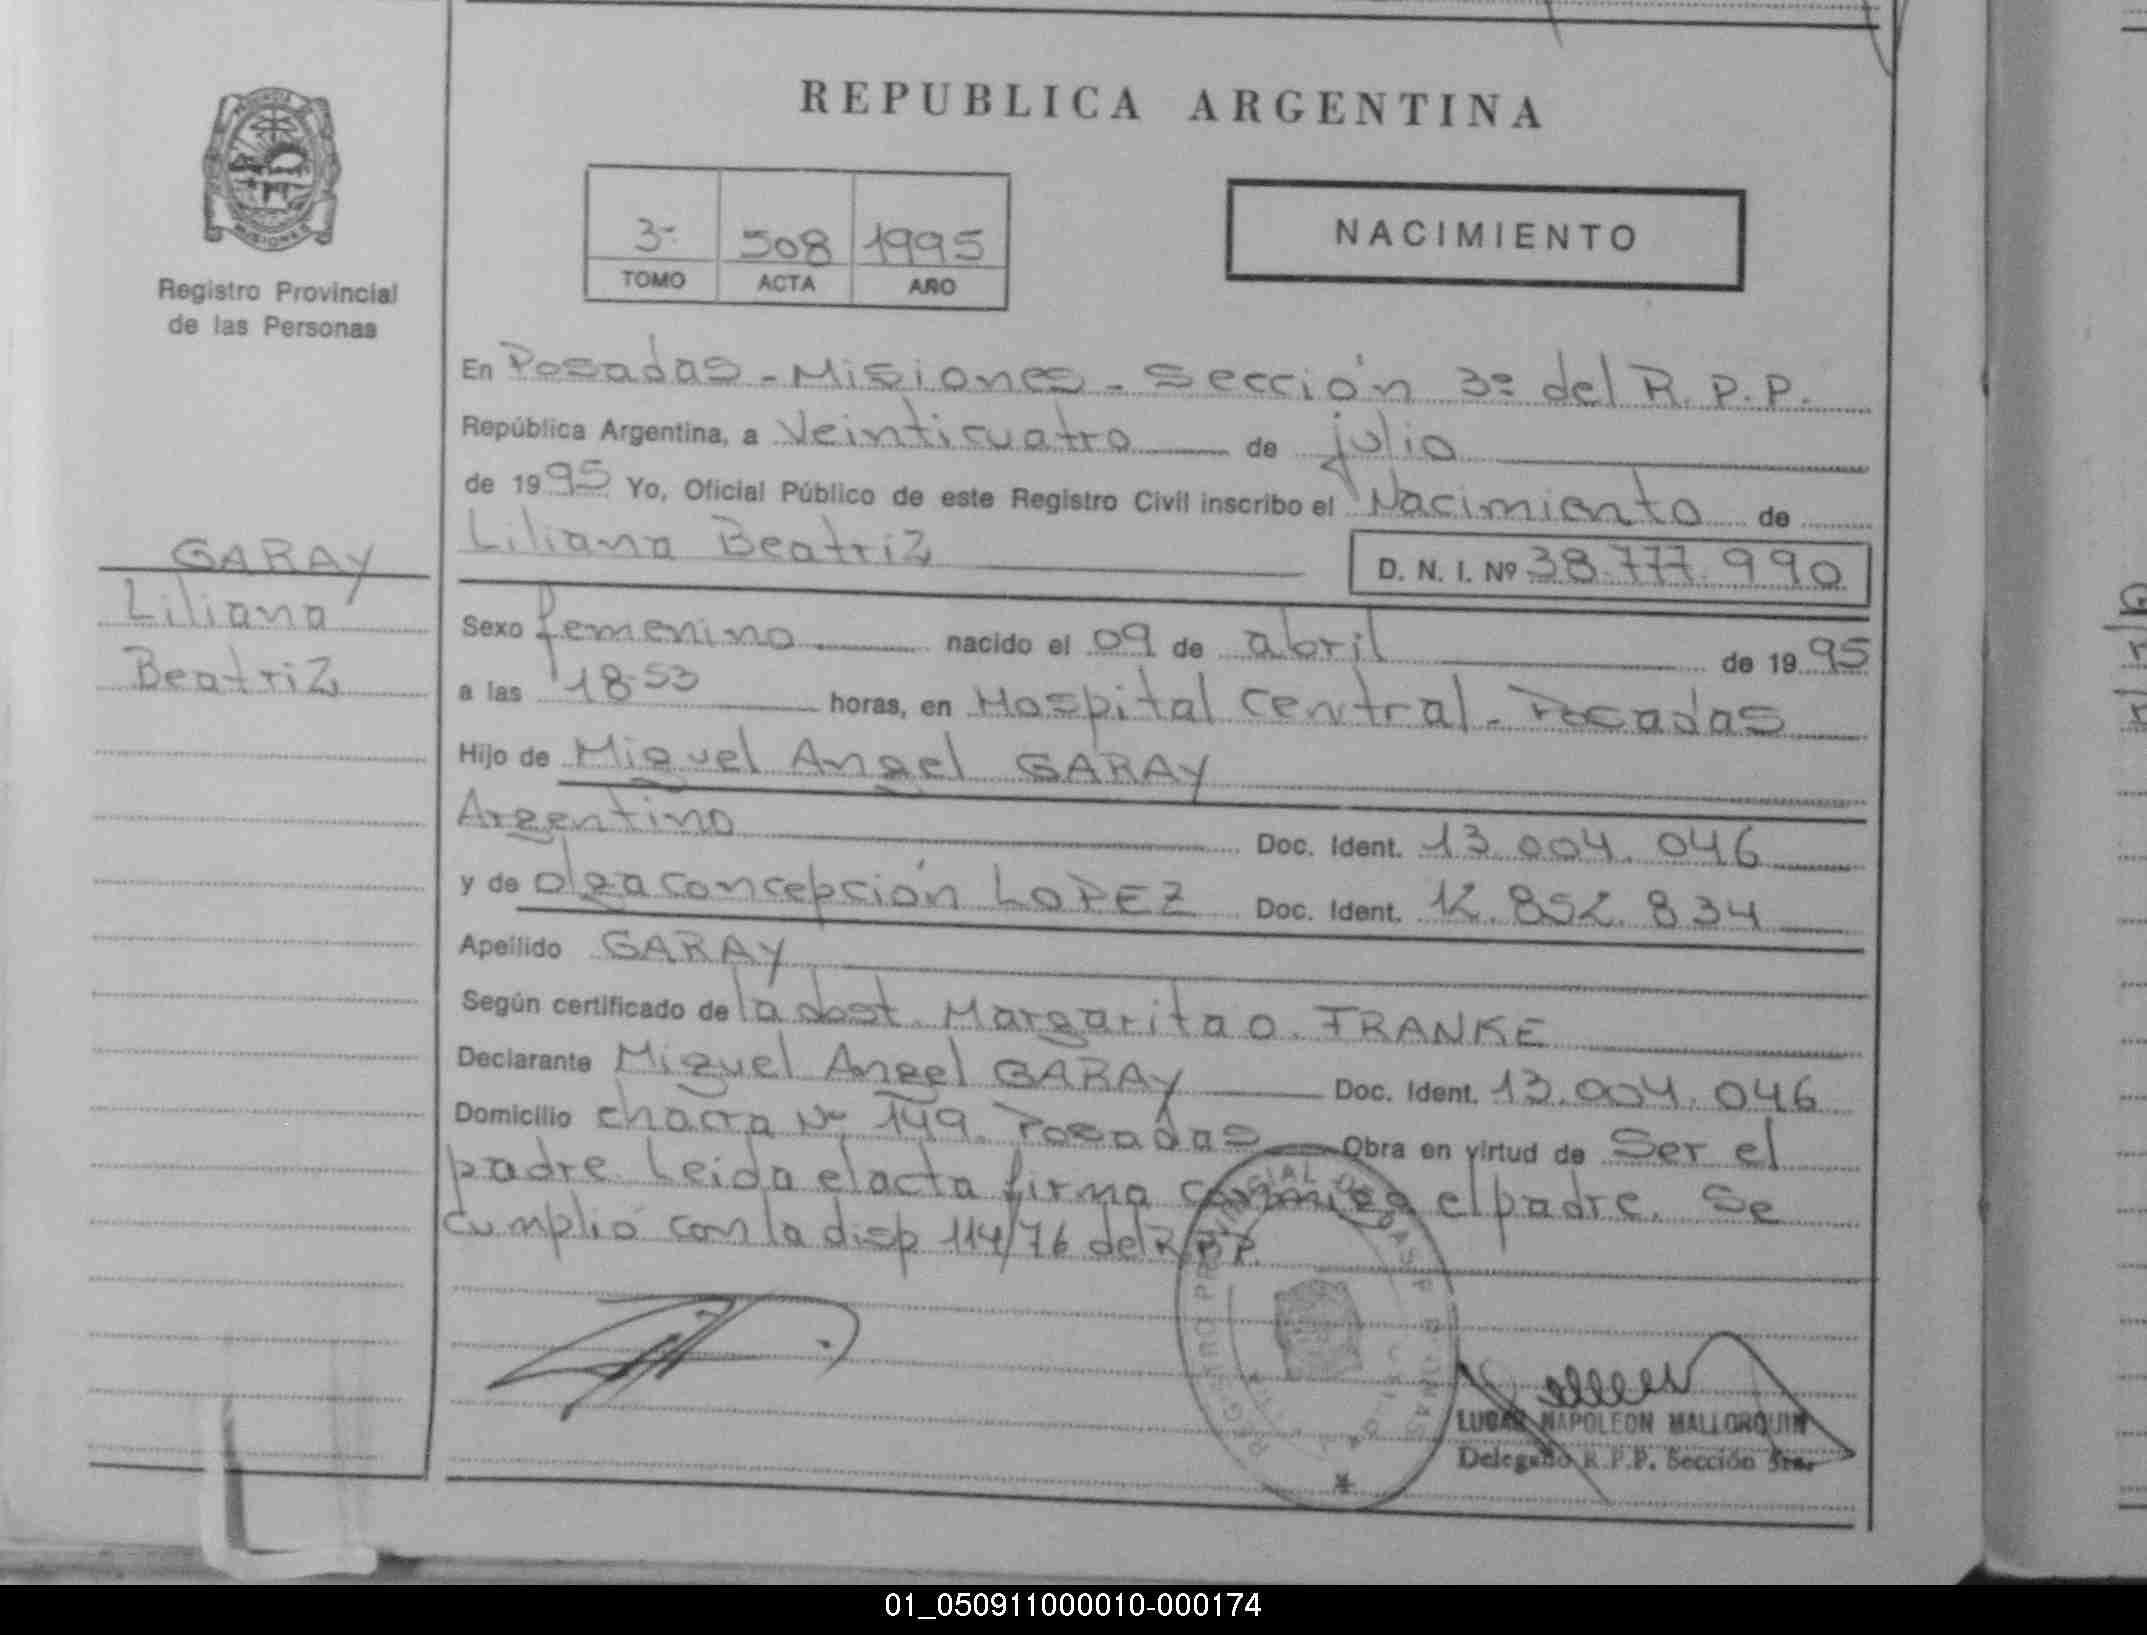 REPUBLICA ARGENTINA
PROVINCIA
MISIONES
Registro Provincial
de las Personas
3º 508 1995
TOMO ACTA AÑO
NACIMIENTO
GARAY
Liliana
Beatriz
En Posadas - Misiones - Sección 3º del R.P.P.
República Argentina, a Veinticuatro de julio
de 1995 Yo, Oficial Público de este Registro Civil inscribo el Nacimiento de
Liliana Beatriz D. N. I. Nº 38.777.990
Sexo femenino nacido el 09 de abril de 1995
a las 18-53 horas, en Hospital Central - Posadas
Hijo de Miguel Angel GARAY
Argentino Doc. Ident. 13.004.046
y de Olga Concepción LOPEZ Doc. Ident. 12.852.834
Apellido GARAY
Según certificado de la obst. Margarita O. FRANKE
Declarante Miguel Angel GARAY Doc. Ident. 13.004.046
Domicilio chacra Nº 149. Posadas Obra en virtud de Ser el
padre. Leida el acta firma conmigo el padre. Se
cumplió con la disp 114/76 del R.P.P.
REGISTRO PROVINCIAL DE LAS PERSONAS
LUCAS NAPOLEON MALLORQUIN
Delegado R.P.P. Sección 3ra.
01_050911000010-000174